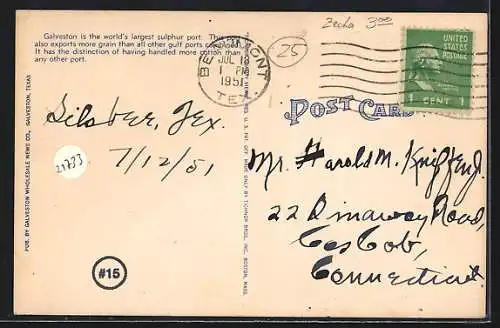 Galveston is the world's largest sulphur port. This
also exports more grain than all other gulf ports combined.
It has the distinction of having handled more cotton than
any other port.
Zecha 3.00
25
BEAUMONT
JUL 13
1 PM
1951
TEX.
UNITED
STATES
POSTAGE
1 CENT 1
POST CARD
Silsbee, Tex.
7/12/51
21733
PUB. BY GALVESTON WHOLESALE NEWS CO., GALVESTON, TEXAS
MADE ONLY BY TICHNOR BROS., INC., BOSTON, MASS.
#15
Mr. Harold M.
22 Road,
Cos Cob,
Connecticut.